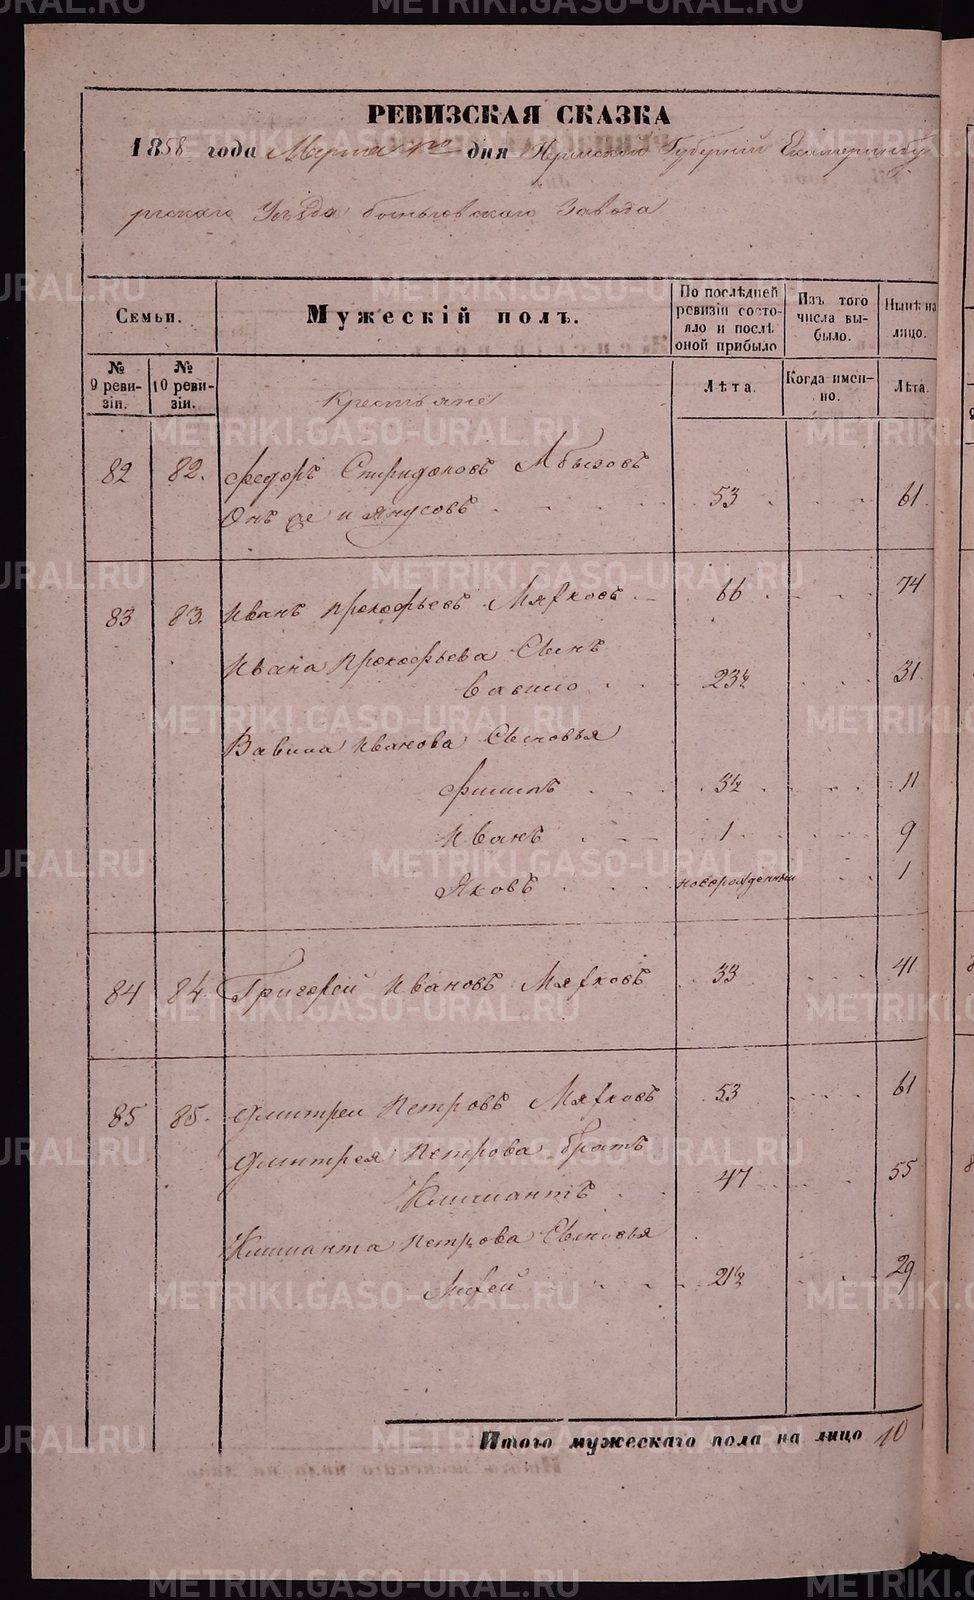 METRIKI.GASO-URAL.RU
РЕВИЗСКАЯ СКАЗКА
1858 года Марта дня Пермской Губерніи Екатеринбу
ргскаго Уѣзда Быньговскаго Завода
Семьи.
Мужескій полъ.
По послѣдней ревизіи состояло и послѣ оной прибыло
Изъ того числа выбыло.
Нынѣ на лицо.
№ 9 ревизіи.
№ 10 ревизіи.
Лѣта.
Когда именно.
Лѣта.
Крестьяне
82 82. Федоръ Спиридоновъ Абызовъ
Онъ же и Янусовъ 53 61
83 83. Иванъ Прокофьевъ Мяхковъ 66 74
Ивана Прокофьева Сынъ
Вавило 23½ 31
Вавила Иванова Сыновья
Филипъ 3½ 11
Иванъ 1 9
Яковъ новорожденный 1
84 84 Григорей Ивановъ Мяхковъ 33 41
85 85. Дмитреи Петровъ Мяхковъ 53 61
Дмитрея Петрова братъ
Климантъ 47 55
Климанта Петрова Сыновья
21½ 29
Итого мужескаго пола на лицо 10